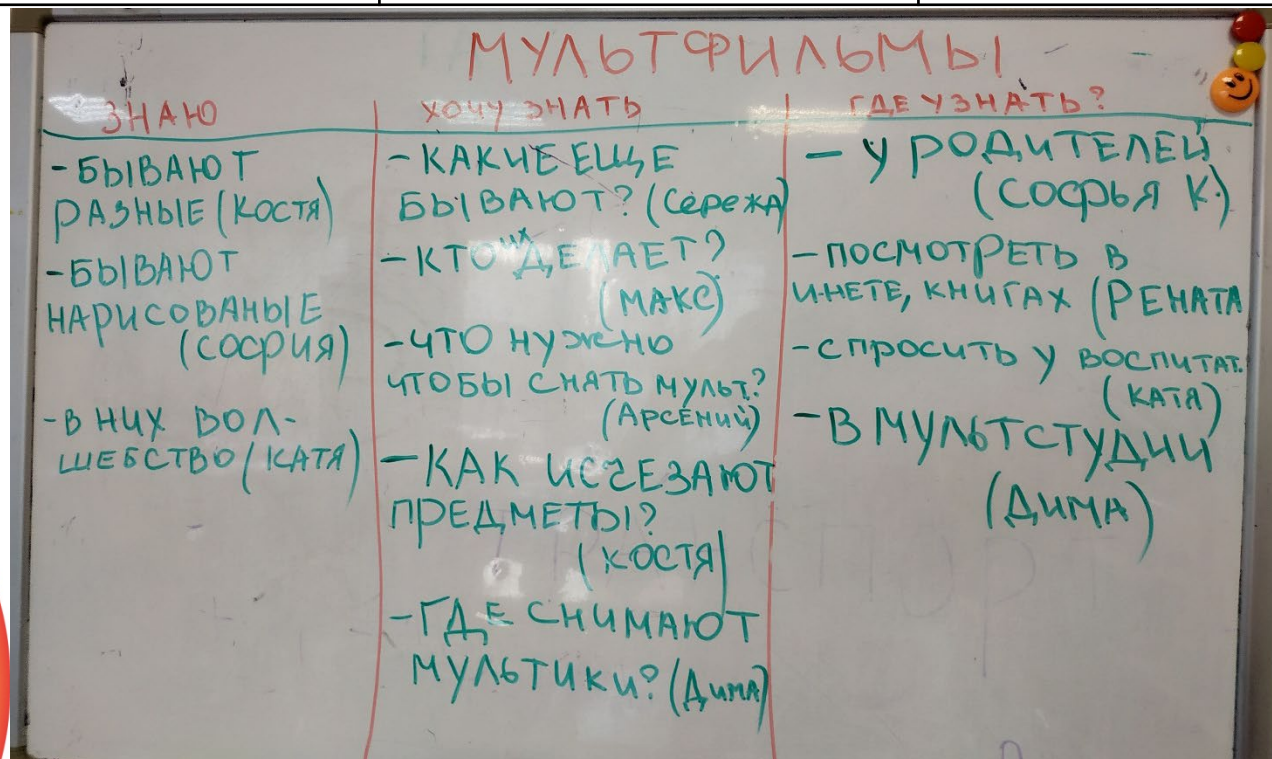 МУЛЬТФИЛЬМЫ
ЗНАЮ
-БЫВАЮТ
РАЗНЫЕ (КОСТЯ)
-БЫВАЮТ
НАРИСОВАНЫЕ
(СОФИЯ)
-В НИХ ВОЛ-
ШЕБСТВО (КАТЯ)
ХОЧУ ЗНАТЬ
-КАКИЕ ЕЩЕ
БЫВАЮТ? (Сережа)
-КТО ИХ ДЕЛАЕТ?
(МАКС)
-ЧТО НУЖНО
ЧТОБЫ СНЯТЬ МУЛЬТ.?
(Арсений)
-КАК ИСЧЕЗАЮТ
ПРЕДМЕТЫ?
(КОСТЯ)
-ГДЕ СНИМАЮТ
МУЛЬТИКИ? (Дима)
ГДЕ УЗНАТЬ?
- У РОДИТЕЛЕЙ
(СОФЬЯ К.)
-ПОСМОТРЕТЬ В
И-НЕТЕ, КНИГАХ (РЕНАТА
-СПРОСИТЬ У ВОСПИТАТ.
(КАТЯ)
-В МУЛЬТСТУДИИ
(ДИМА)